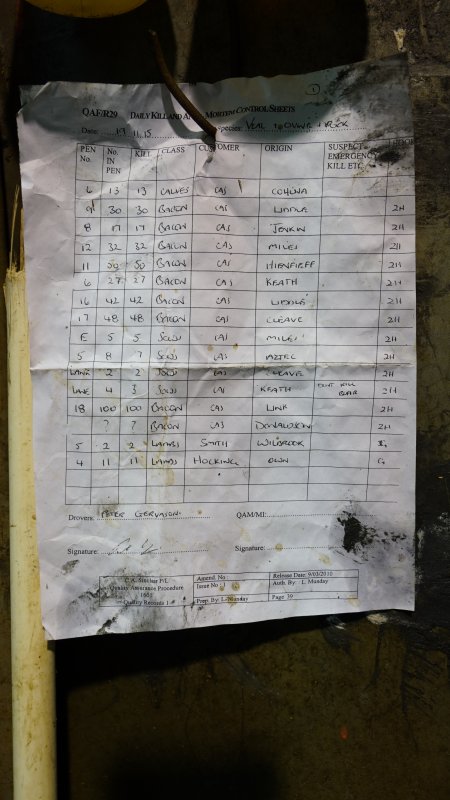 1
QAF/R29 DAILY KILL AND MORTEM CONTROL SHEETS
Date: 19.11.15 Species: VEAL
PEN No. No. IN PEN KILL CLASS CUSTOMER ORIGIN SUSPECT EMERGENCY KILL ETC.
6 13 13 CALVES CAS COHUNA
9 30 30 BACON CAS 2H
8 17 17 BACON CAS JENKIN 2H
12 32 32 BACON CAS MILES 2H
11 50 50 BACON CAS 2H
6 27 27 BACON CAS KEATH 2H
16 42 42 BACON CAS 2H
17 48 48 BACON CAS CLEAVE 2H
E 5 5 SOWS CAS MILES 2H
5 8 7 SOWS CAS AZTEC 2H
LANE 2 2 SOWS CAS CLEAVE 2H
LANE 4 3 SOWS CAS KEATH DONT KILL BOAR 2H
18 100 100 BACON CAS LINK 2H
? ? BACON CAS DONALDSON 2H
5 2 2 LAMBS SMITH WILBROOK
4 11 11 LAMBS HOCKING OWN
Drovers: PETER GERVASONI QAM/MI:
Signature: Signature:
C.A. Sinclair P/L Amend. No Release Date: 9/03/2010
Quality Assurance Procedure Issue No : Auth. By: L. Munday
Quality Records Prep. By: L. Munday Page 39